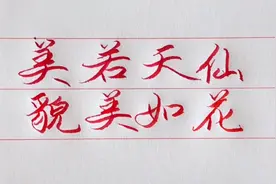 美若天仙
貌美如花